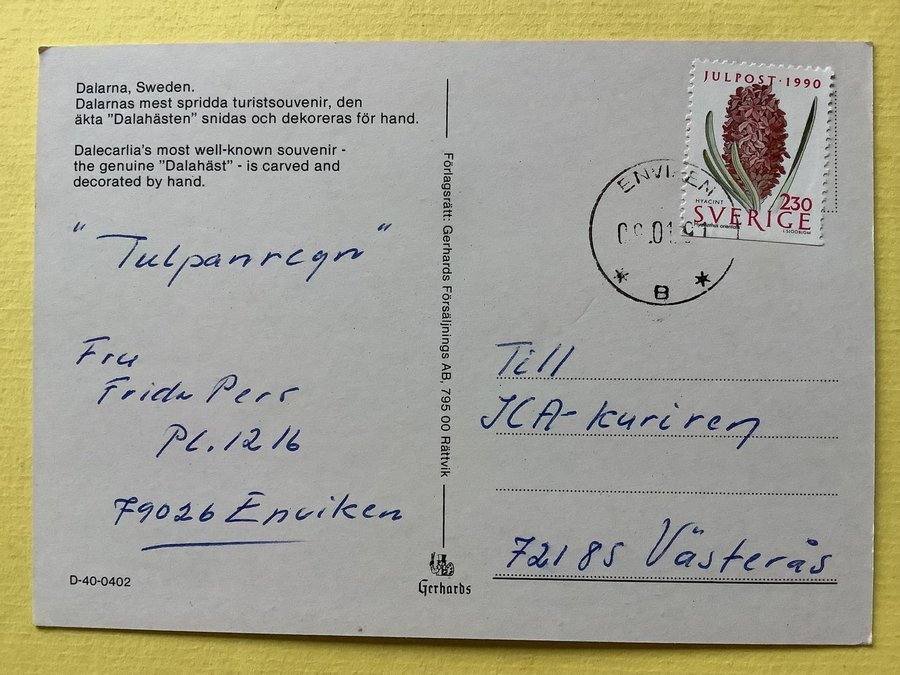 Dalarna, Sweden.
Dalarnas mest spridda turistsouvenir, den
äkta "Dalahästen" snidas och dekoreras för hand.
Dalecarlia's most well-known souvenir -
the genuine "Dalahäst" - is carved and
decorated by hand.
"Tulpanregn"
Fru
Frida Pers
PL. 1216
79026 Enviken
D-40-0402
Förlagsrätt: Gerhards Försäljnings AB, 795 00 Rättvik
Gerhards
JULPOST · 1990
HYACINT
2.30
SVERIGE
ENVIKEN
B
Till
ICA-kuriren
72185 Västerås